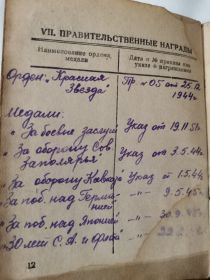 VII. ПРАВИТЕЛЬСТВЕННЫЕ НАГРАДЫ
Наименование ордена, медали
Дата и № приказа или указа о награждении
Орден „Красная Звезда"
Пр № 05 от 25.12 1944г.
Медали:
„За боевые заслуги Указ от 19.11.51г.
„За оборону Сов. Заполярья" Указ от 3.5.44г.
„За оборону Кавказа Указ от 1.5.44
„За поб. над Германией —„— 9.5.45г.
„За поб. над Японией —„— 30.9.45г.
„30 лет С.А. и Флота —„— 22.2.
12